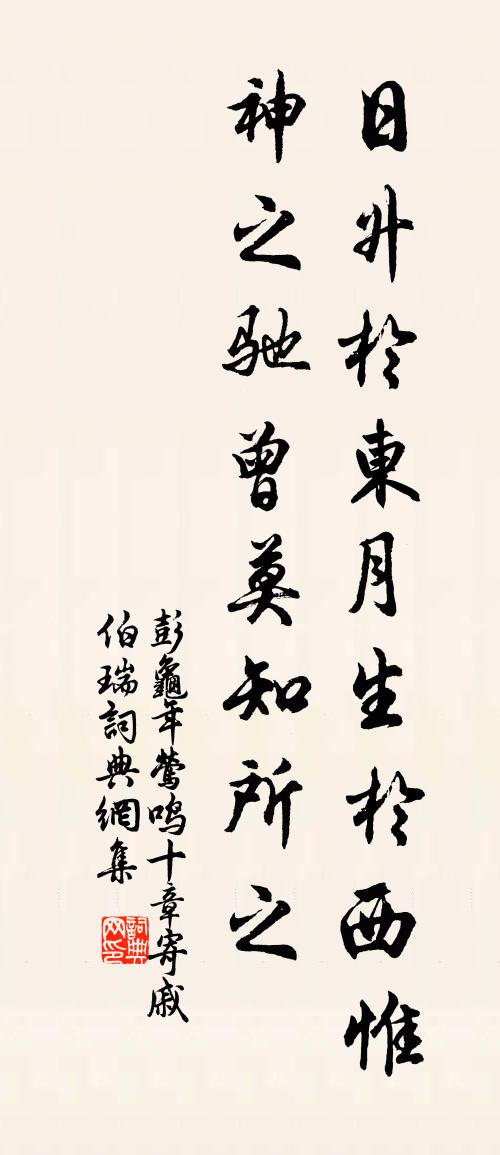 日升於東月生於西惟
神之馳曾莫知所之
彭龜年鶯鳴十章寄戚
伯瑞詞典網集
詞典
网印